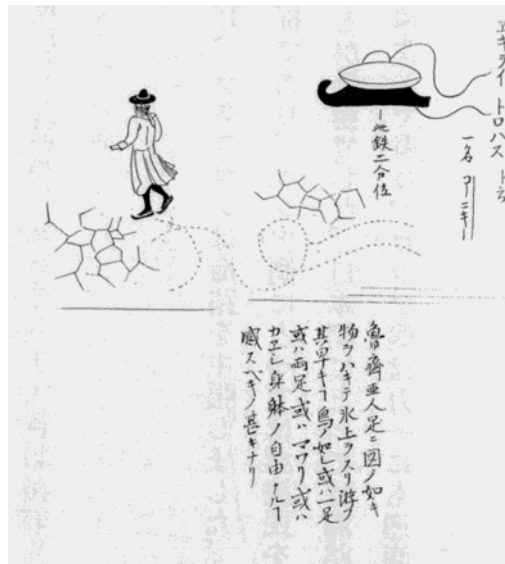 エキタイ トロハス ト云
一名 コーニキー
地鉄二分位
魯齊亜人足ニ図ノ如キ
物ヲハキテ氷上ヲスリ游フ
其早キ鳥ノ如し或ハ一足
或ハ両足或ハマワリ或ハ
カエシ身躰ノ自由ナル
感スベキノ甚キナリ